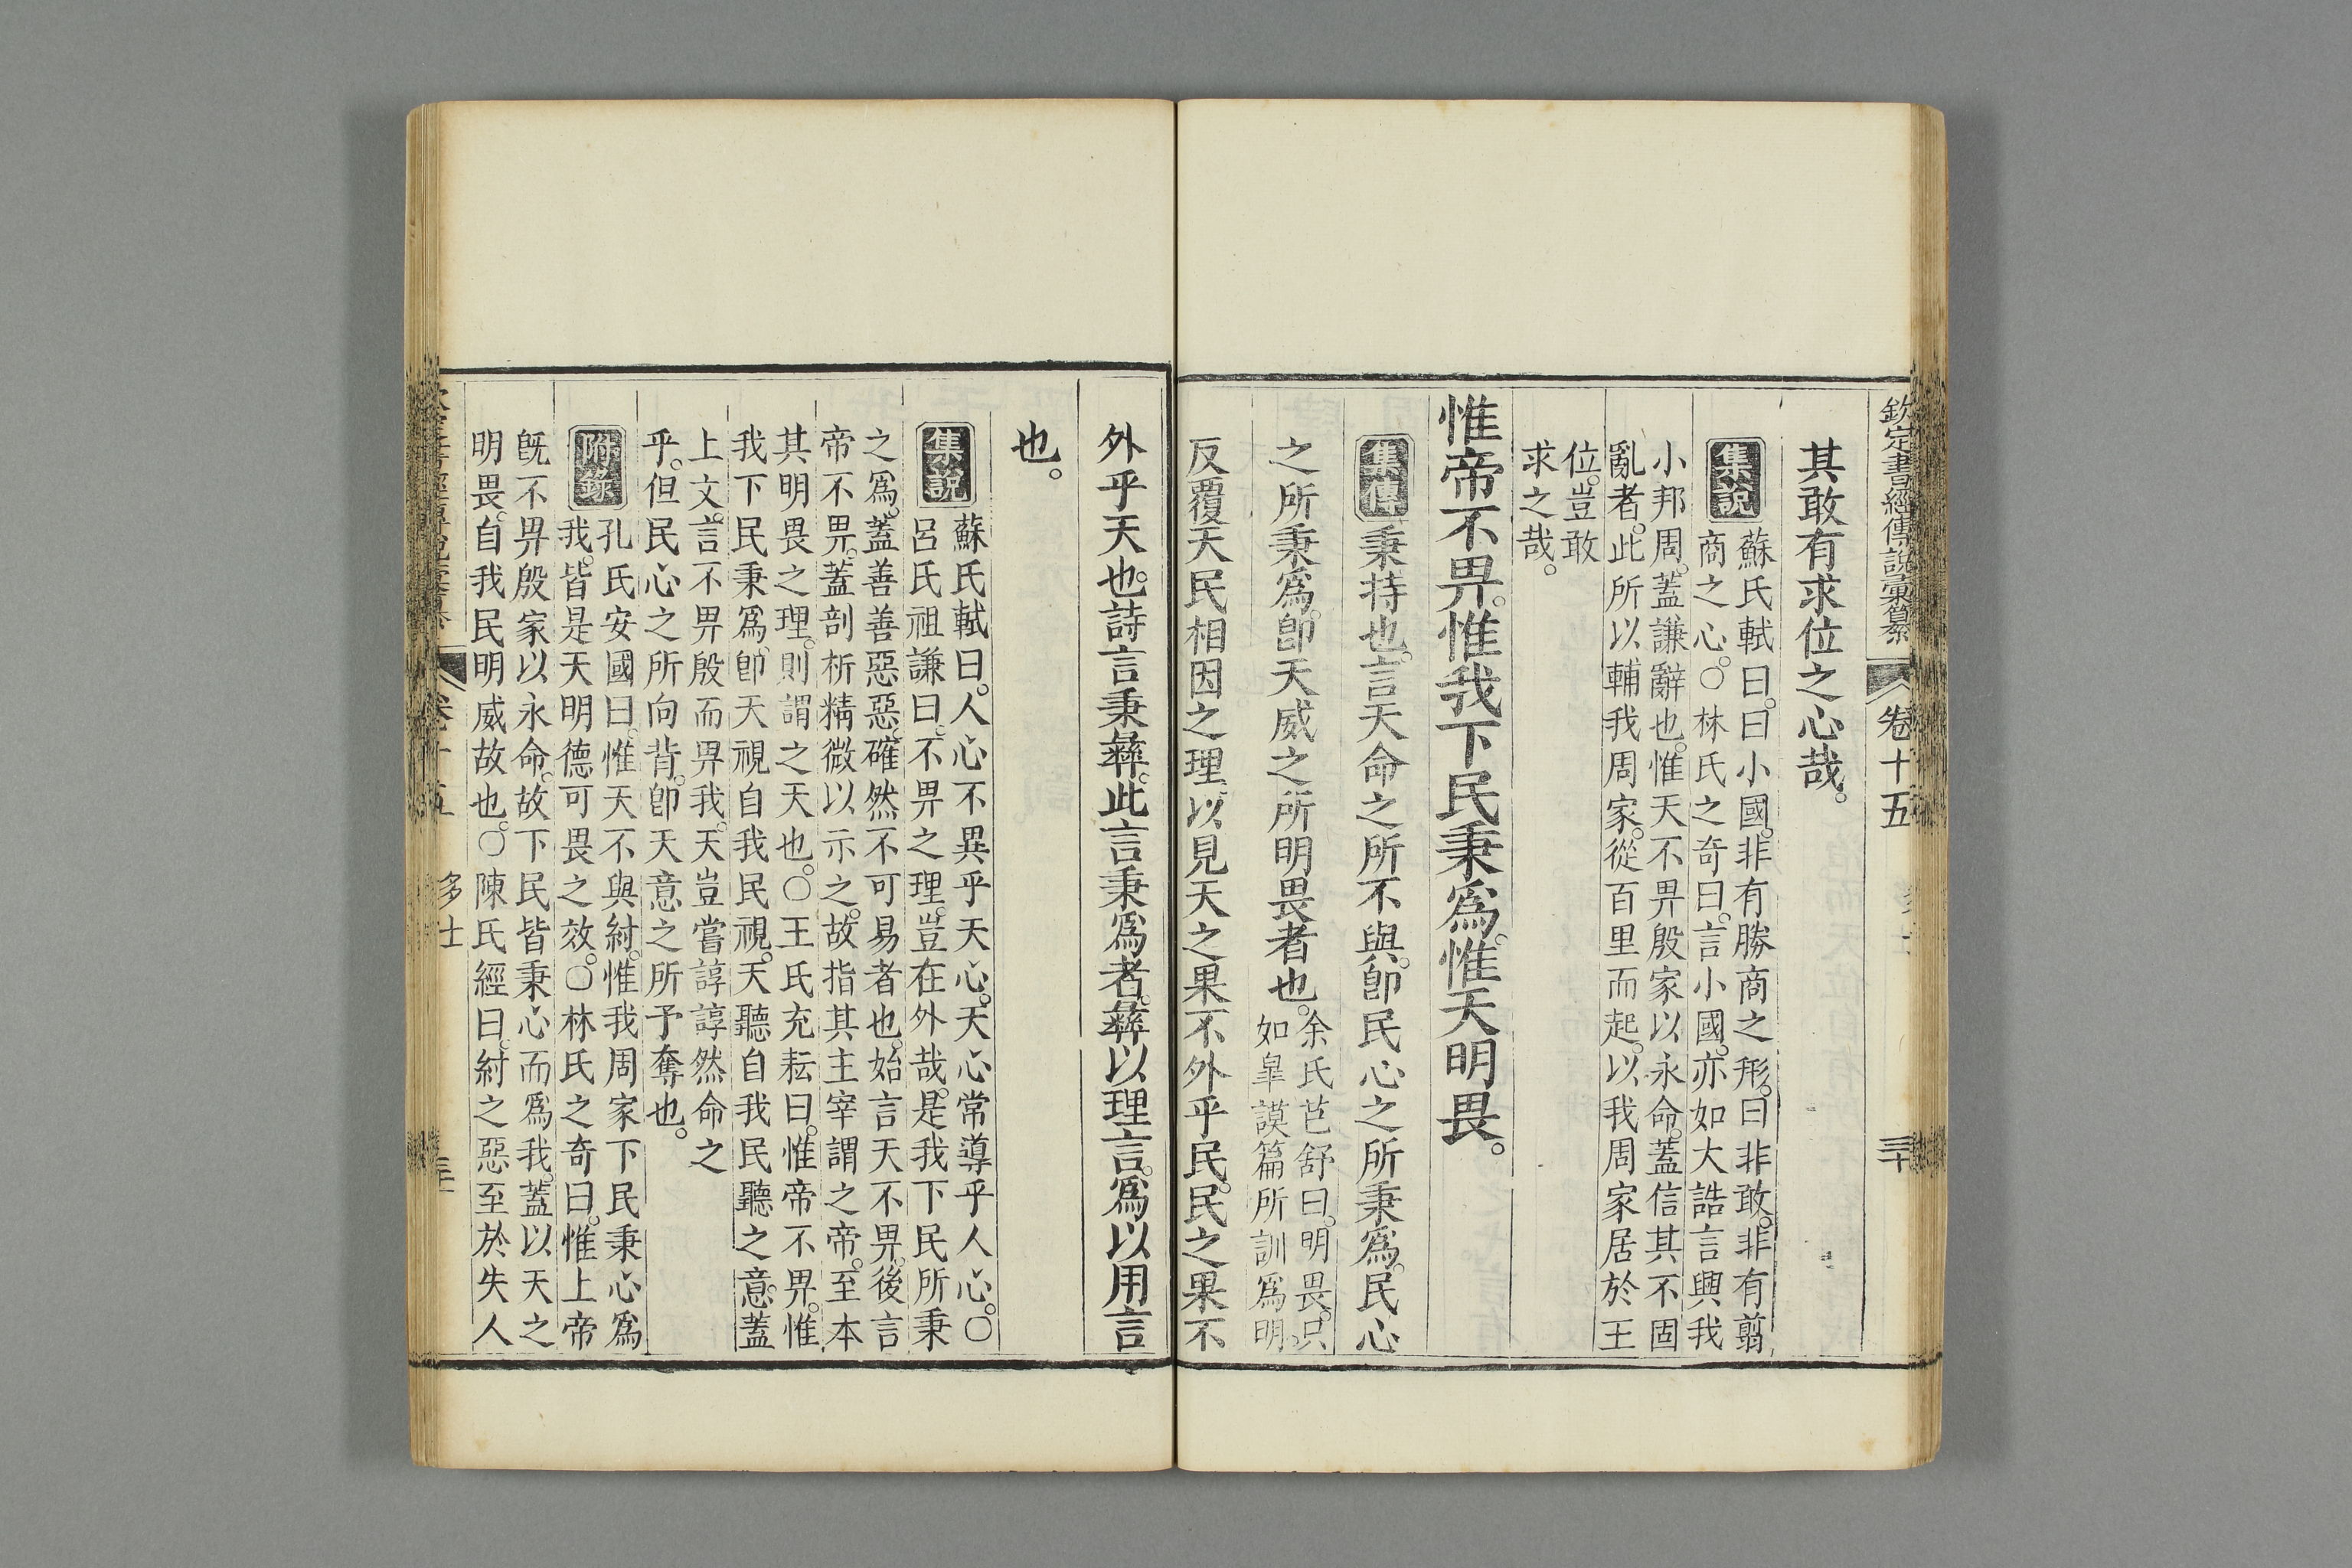 欽定書經傳說彙纂 卷十五 三十
其敢有求位之心哉。
集說 蘇氏軾曰。曰小國。非有勝商之形。曰非敢。非有翦
商之心。○林氏之奇曰。言小國。亦如大誥言興我
小邦周。蓋謙辭也。惟天不畀殷家以永命。蓋信其不固
亂者。此所以輔我周家。從百里而起。以我周家居於王
位。豈敢
求之哉。
惟帝不畀。惟我下民秉爲。惟天明畏。
集傳 秉持也。言天命之所不與。卽民心之所秉爲。民心
之所秉爲。卽天威之所明畏者也。
余氏芑舒曰。明畏。只
如皐謨篇所訓爲明。
反覆天民相因之理。以見天之果不外乎民。民之果不
外乎天也。詩言秉彝。此言秉爲者。彝以理言。爲以用言
也。
集說 蘇氏軾曰。人心不異乎天心。天心常導乎人心。○
呂氏祖謙曰。不畀之理。豈在外哉。是我下民所秉
之爲。蓋善善惡惡。確然不可易者也。始言天不畀。後言
帝不畀。蓋剖析精微以示之。故指其主宰謂之帝。至本
其明畏之理。則謂之天也。○王氏充耘曰。惟帝不畀。惟
我下民秉爲。卽天視自我民視。天聽自我民聽之意。蓋
上文言不畀殷而畀我。天豈嘗諄諄然命之
乎。但民心之所向背。卽天意之所予奪也。
附錄 孔氏安國曰。惟天不與紂。惟我周家下民秉心爲
我。皆是天明德可畏之效。○林氏之奇曰。惟上帝
旣不畀殷家以永命。故下民皆秉心而爲我。蓋以天之
明畏。自我民明威故也。○陳氏經曰。紂之惡至於失人
卷十五 多士